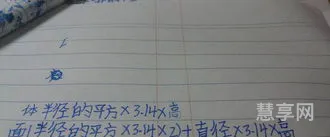 体半径的平方×3.14×高
面(半径的平方×3.14×2)+直径×3.14×高
慧享网
www.hxw.red